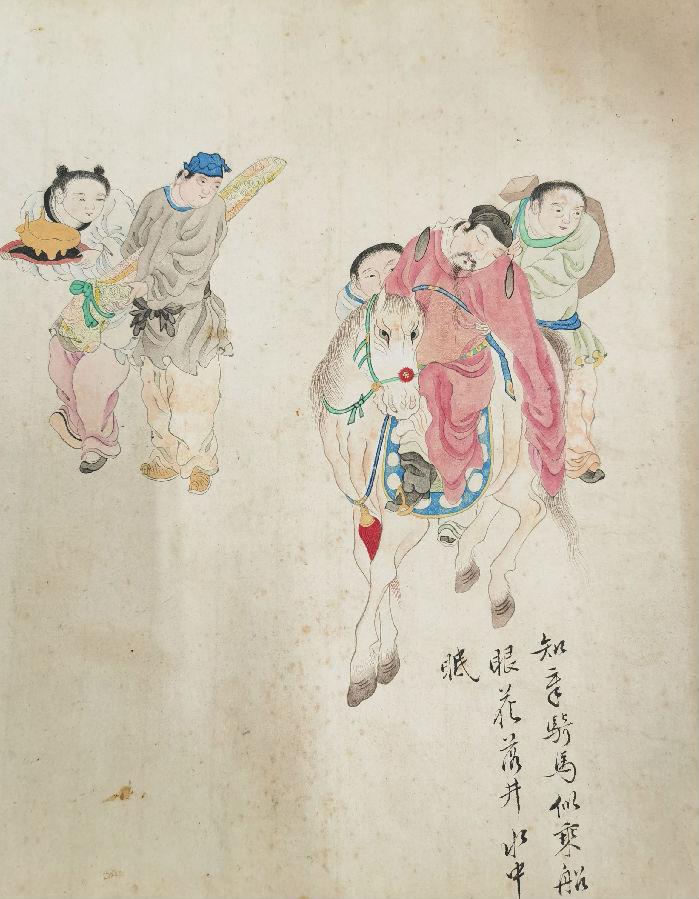 知章騎馬似乘船
眼花落井水中
眠